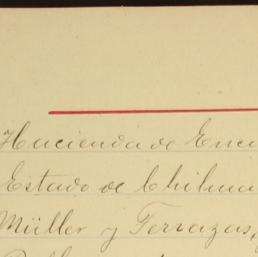 Hacienda de Enci
Estado de Chihua
Müller y Terrazas,